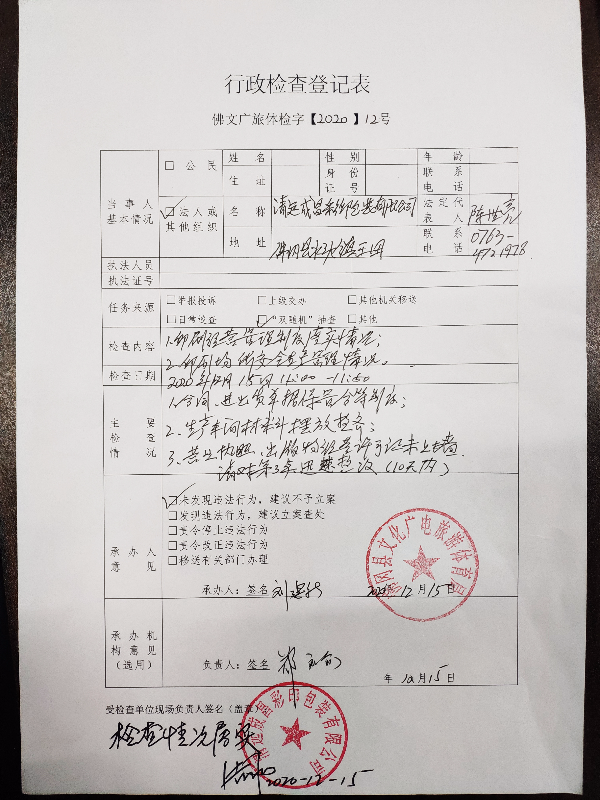 行政检查登记表
佛文广旅体检字【2020】12号
当事人基本情况
□公民
姓名
性别
年龄
住址
身份证号
联系电话
☑法人或其他组织
名称
清远成昌彩印包装有限公司
法定代表人
陈世亮
地址
佛冈县水头镇王田
联系电话
0763-4721978
执法人员
执法证号
任务来源
□举报投诉 □上级交办 □其他机关移送
□日常巡查 ☑“双随机”抽查 □其他
检查内容
1.印刷经营管理制度落实情况;
2.印刷场所安全生产管理情况。
检查日期
2020年12月15日 11:00-11:50
主要检查情况
1.合同、进出货单据保管台等制度;
2.生产车间材料摆放整齐;
3.营业执照、出版物经营许可证未上墙.
请对第3条迅速整改(10天内)
承办人意见
☑未发现违法行为,建议不予立案
□发现违法行为,建议立案查处
□责令停止违法行为
□责令改正违法行为
□移送有关部门办理
承办人:签名
2020.12月15日
佛冈县文化广电旅游体育局
承办机构意见(选用)
负责人:签名
年 12月15日
受检查单位现场负责人签名(盖章)
清远成昌彩印包装有限公司
检查情况属实
2020-12-15